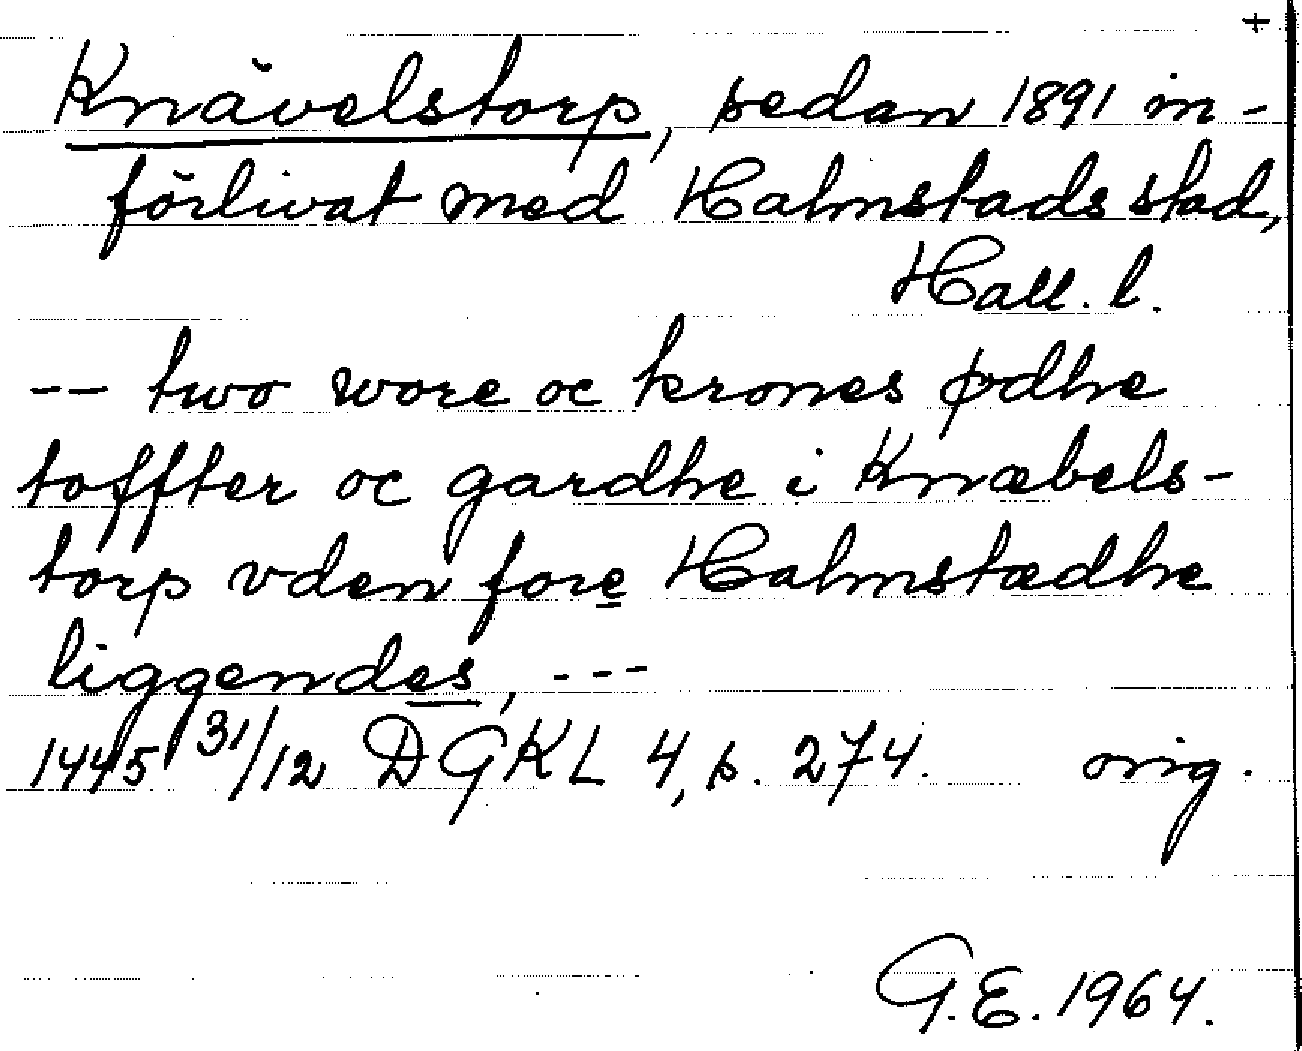 +
Knävelstorp, sedan 1891 in-
förlivat med Halmstads stad,
Hall. l.
-- two wore oc krones ødhe
toffter oc gardhe i Knæbels-
torp vden fore Halmstædhe
liggendes, ---
1445 31/12 DGKL 4, s. 274. orig.
G.E. 1964.